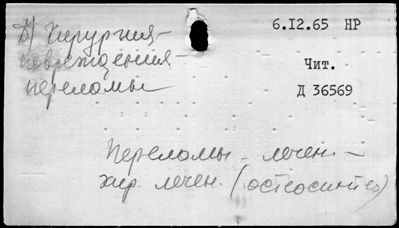 6.I2.65 НР
Д) Хирургия -
повреждения -
переломы
Чит.
Д 36569
Переломы - лечен. -
хир. лечен. (остеосинтез)